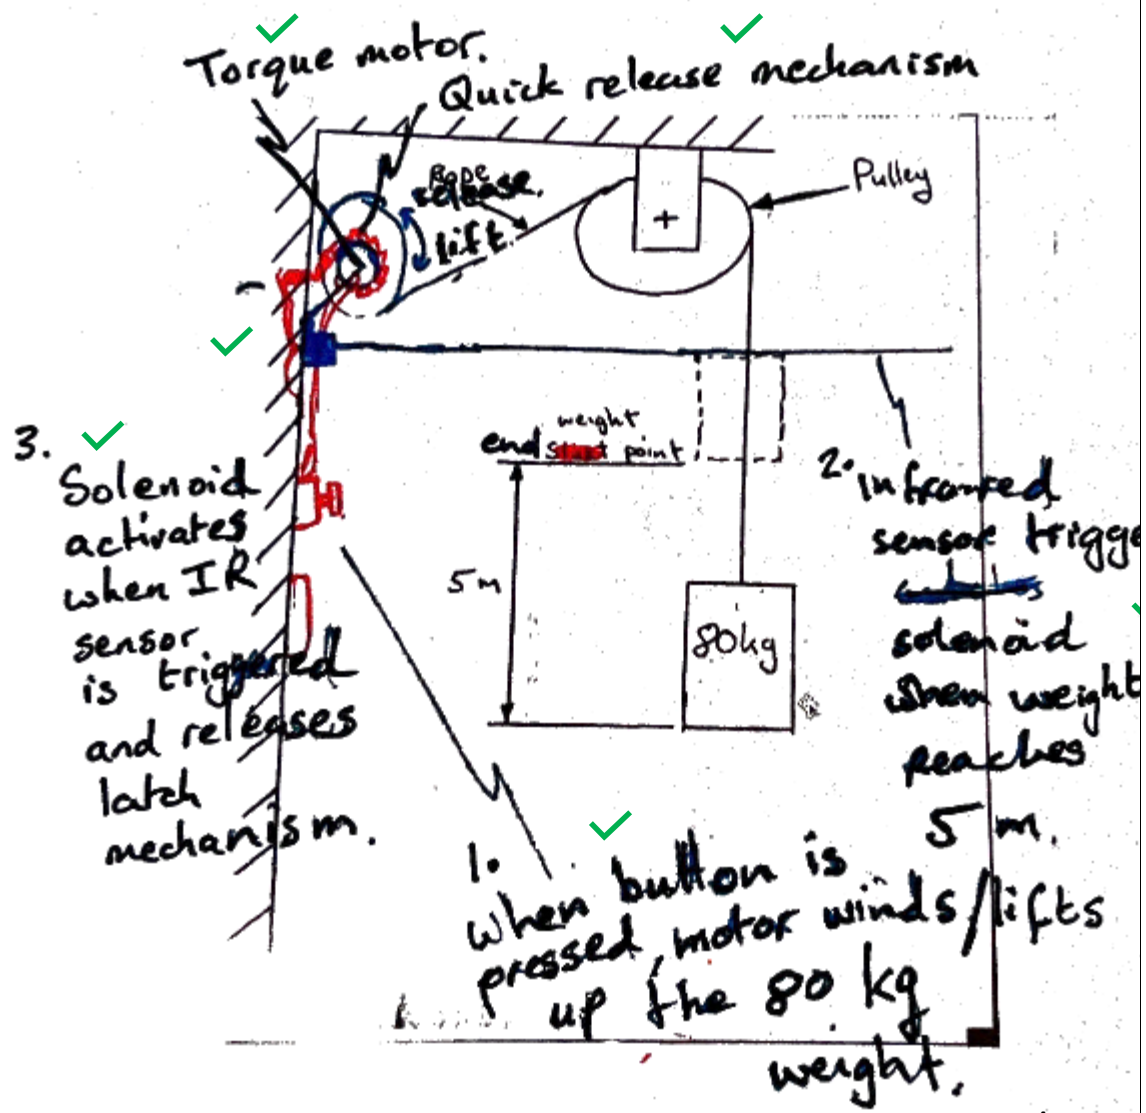 Torque motor.
Quick release mechanism
Rope
release.
lift.
Pulley
+
weight
end point
5m
80kg
3.
Solenoid
activates
when IR
sensor
is triggered
and releases
latch
mechanism.
2. infrared
sensor trigge
solenoid
when weight
reaches
5 m.
1.
when button is
pressed, motor winds/lifts
up the 80 kg
weight.